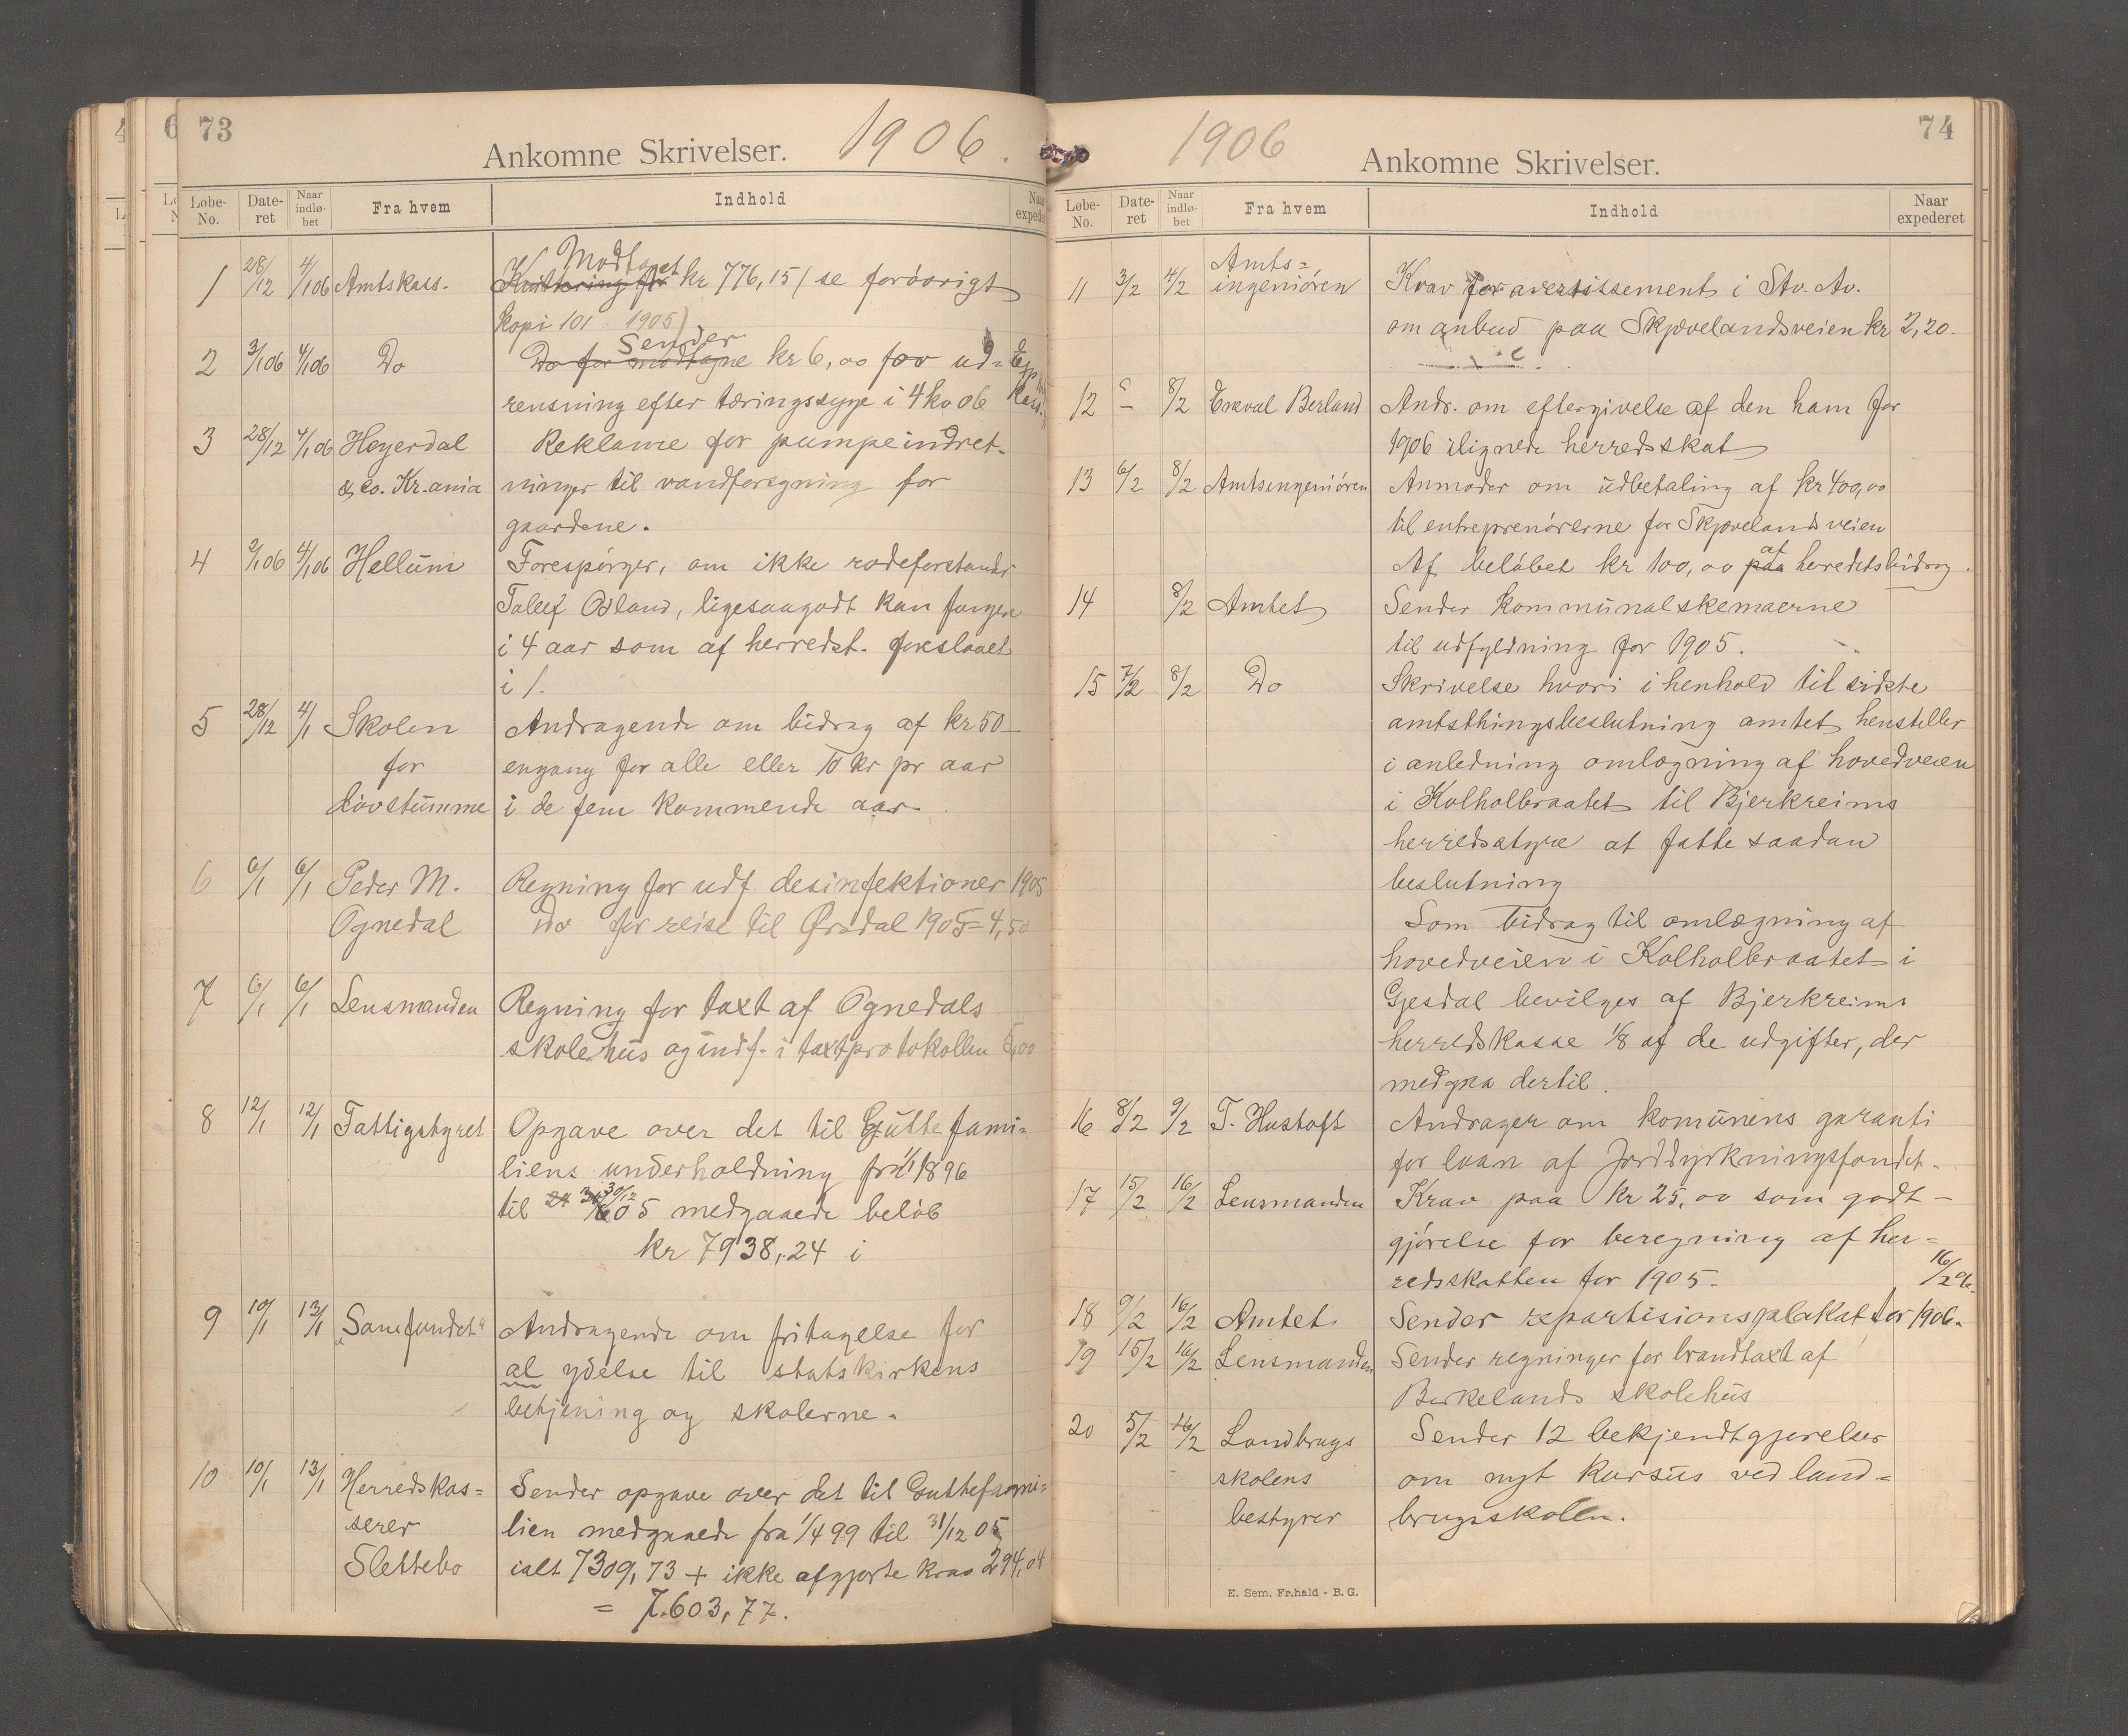 73
Ankomne Skrivelser. 1906.
Løbe-No. Date-ret Naar indlø-bet Fra hvem Indhold Naar expede
1 28/12 4/1 06 Amtskass. Kvittering for Modtaget kr 776,15 (se forövrigt
kopi 101 1905)
2 3/1 06 4/1 06 Do Do for modtagne Sender kr 6,00 for ud=
rensning efter tæringssyge i 4 kv 06
3 28/12 4/1 06 Heyerdal Reklame for pumpeindret-
& Co. Kr.ania ninger til vandforsyning for
gaardene.
4 2/1 06 4/1 06 Hellum Forespörger, om ikke rodeforstander
Tollef Odland, ligesaagodt kan fungere
i 4 aar som af herredst. foreslaaet
i 1.
5 28/12 4/1 Skolen Andragende om bidrag af kr 50 –
for engang for alle eller 10 kr pr aar
dövstumme i de fem kommende aar.
6 6/1 6/1 Peder M. Regning for udf. desinfektioner 1905
Ognedal Do for reise til Ørsdal 1905 = 4,50
7 6/1 6/1 Lensmanden Regning for taxt af Ognedals
skolehus og indf. i taxtprotokollen 6,00
8 12/1 12/1 Fattigstyret Opgave over det til Gutte fami=
liens underholdning fra 1/1 1896
til 30/12 05 medgaaede belöb
kr 7938,24 i
9 10/1 13/1 "Samfundet" Andragende om fritagelse for
al ydelse til statskirkens
betjening og skolerne.
10 10/1 13/1 Herredskas= Sender opgave over det til Guttefami=
serer lien medgaaede fra 1/4 99 til 31/12 05
Slettebo ialt 7309,73 + ikke afgjorte krav 294,04
= 7.603,77.
74
1906 Ankomne Skrivelser.
Løbe-No. Date-ret Naar indlø-bet Fra hvem Indhold Naar expederet
11 3/2 4/2 Amts=
ingeniören Krav for avertissement i Stv. Av.
om anbud paa Skjævelandsveien kr 2,20.
12 – 8/2 Eneval Berland Andr. om eftergivelse af den ham for
1906 ilignede herredsskat
13 6/2 8/2 Amtsingeniören Anmoder om udbetaling af kr 400,00
til entreprenörerne for Skjævelandsveien
Af belöbet kr 100,00 paa af herredetsbidrag.
14 8/2 Amtet Sender kommunalskemaerne
til udfyldning for 1905.
15 7/2 8/2 Do Skrivelse hvori i henhold til sidste
amtsthingsbeslutning amtet henstiller
i anledning omlægning af hovedveien
i Kolholbraatet til Bjerkreims
herredsstyre at fatte saadan
beslutning
Som bidrag til omlægning af
hovedveien i Kolholbraatet i
Gjesdal bevilges af Bjerkreims
herredskasse 1/8 af de udgifter, der
medgaa dertil.
16 8/2 9/2 T. Hustoft Andrager om komunens garanti
for laan af Jorddyrkningsfondet.
17 15/2 16/2 Lensmanden Krav paa kr 25,00 som godt-
gjörelse for beregning af her=
redsskatten for 1905. 16/2 06
18 9/2 16/2 Amtet Sender repartisionsplakat for 1906.
19 15/2 16/2 Lensmanden Sender regninger for brandtaxt af
Birkelands skolehus
20 5/2 16/2 Landbrugs Sender 12 bekjendtgjørelser
skolens om nyt kursus ved land=
bestyrer brugsskolen.
E. Sem, Fr.hald - B.G.